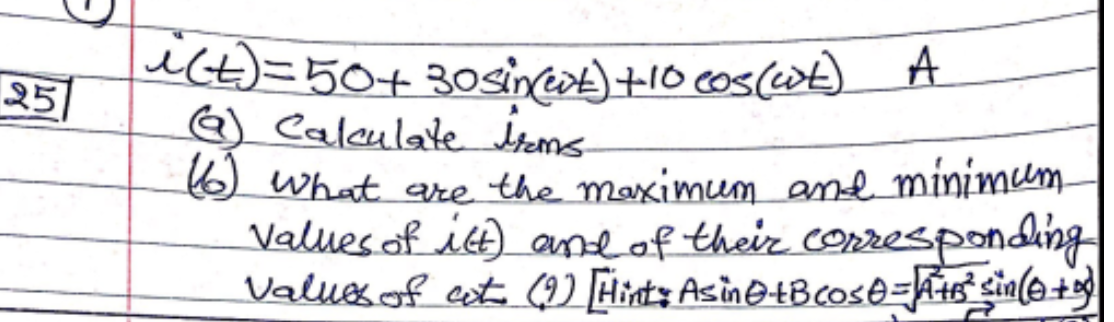 i(t)=50+ 30sin(ωt)+10 cos(ωt) A
25
(a) Calculate irms
(b) What are the maximum and minimum
values of i(t) and of their corresponding
values of ωt (9) [Hint: Asinθ+Bcosθ=√A²+B² sin(θ+α)